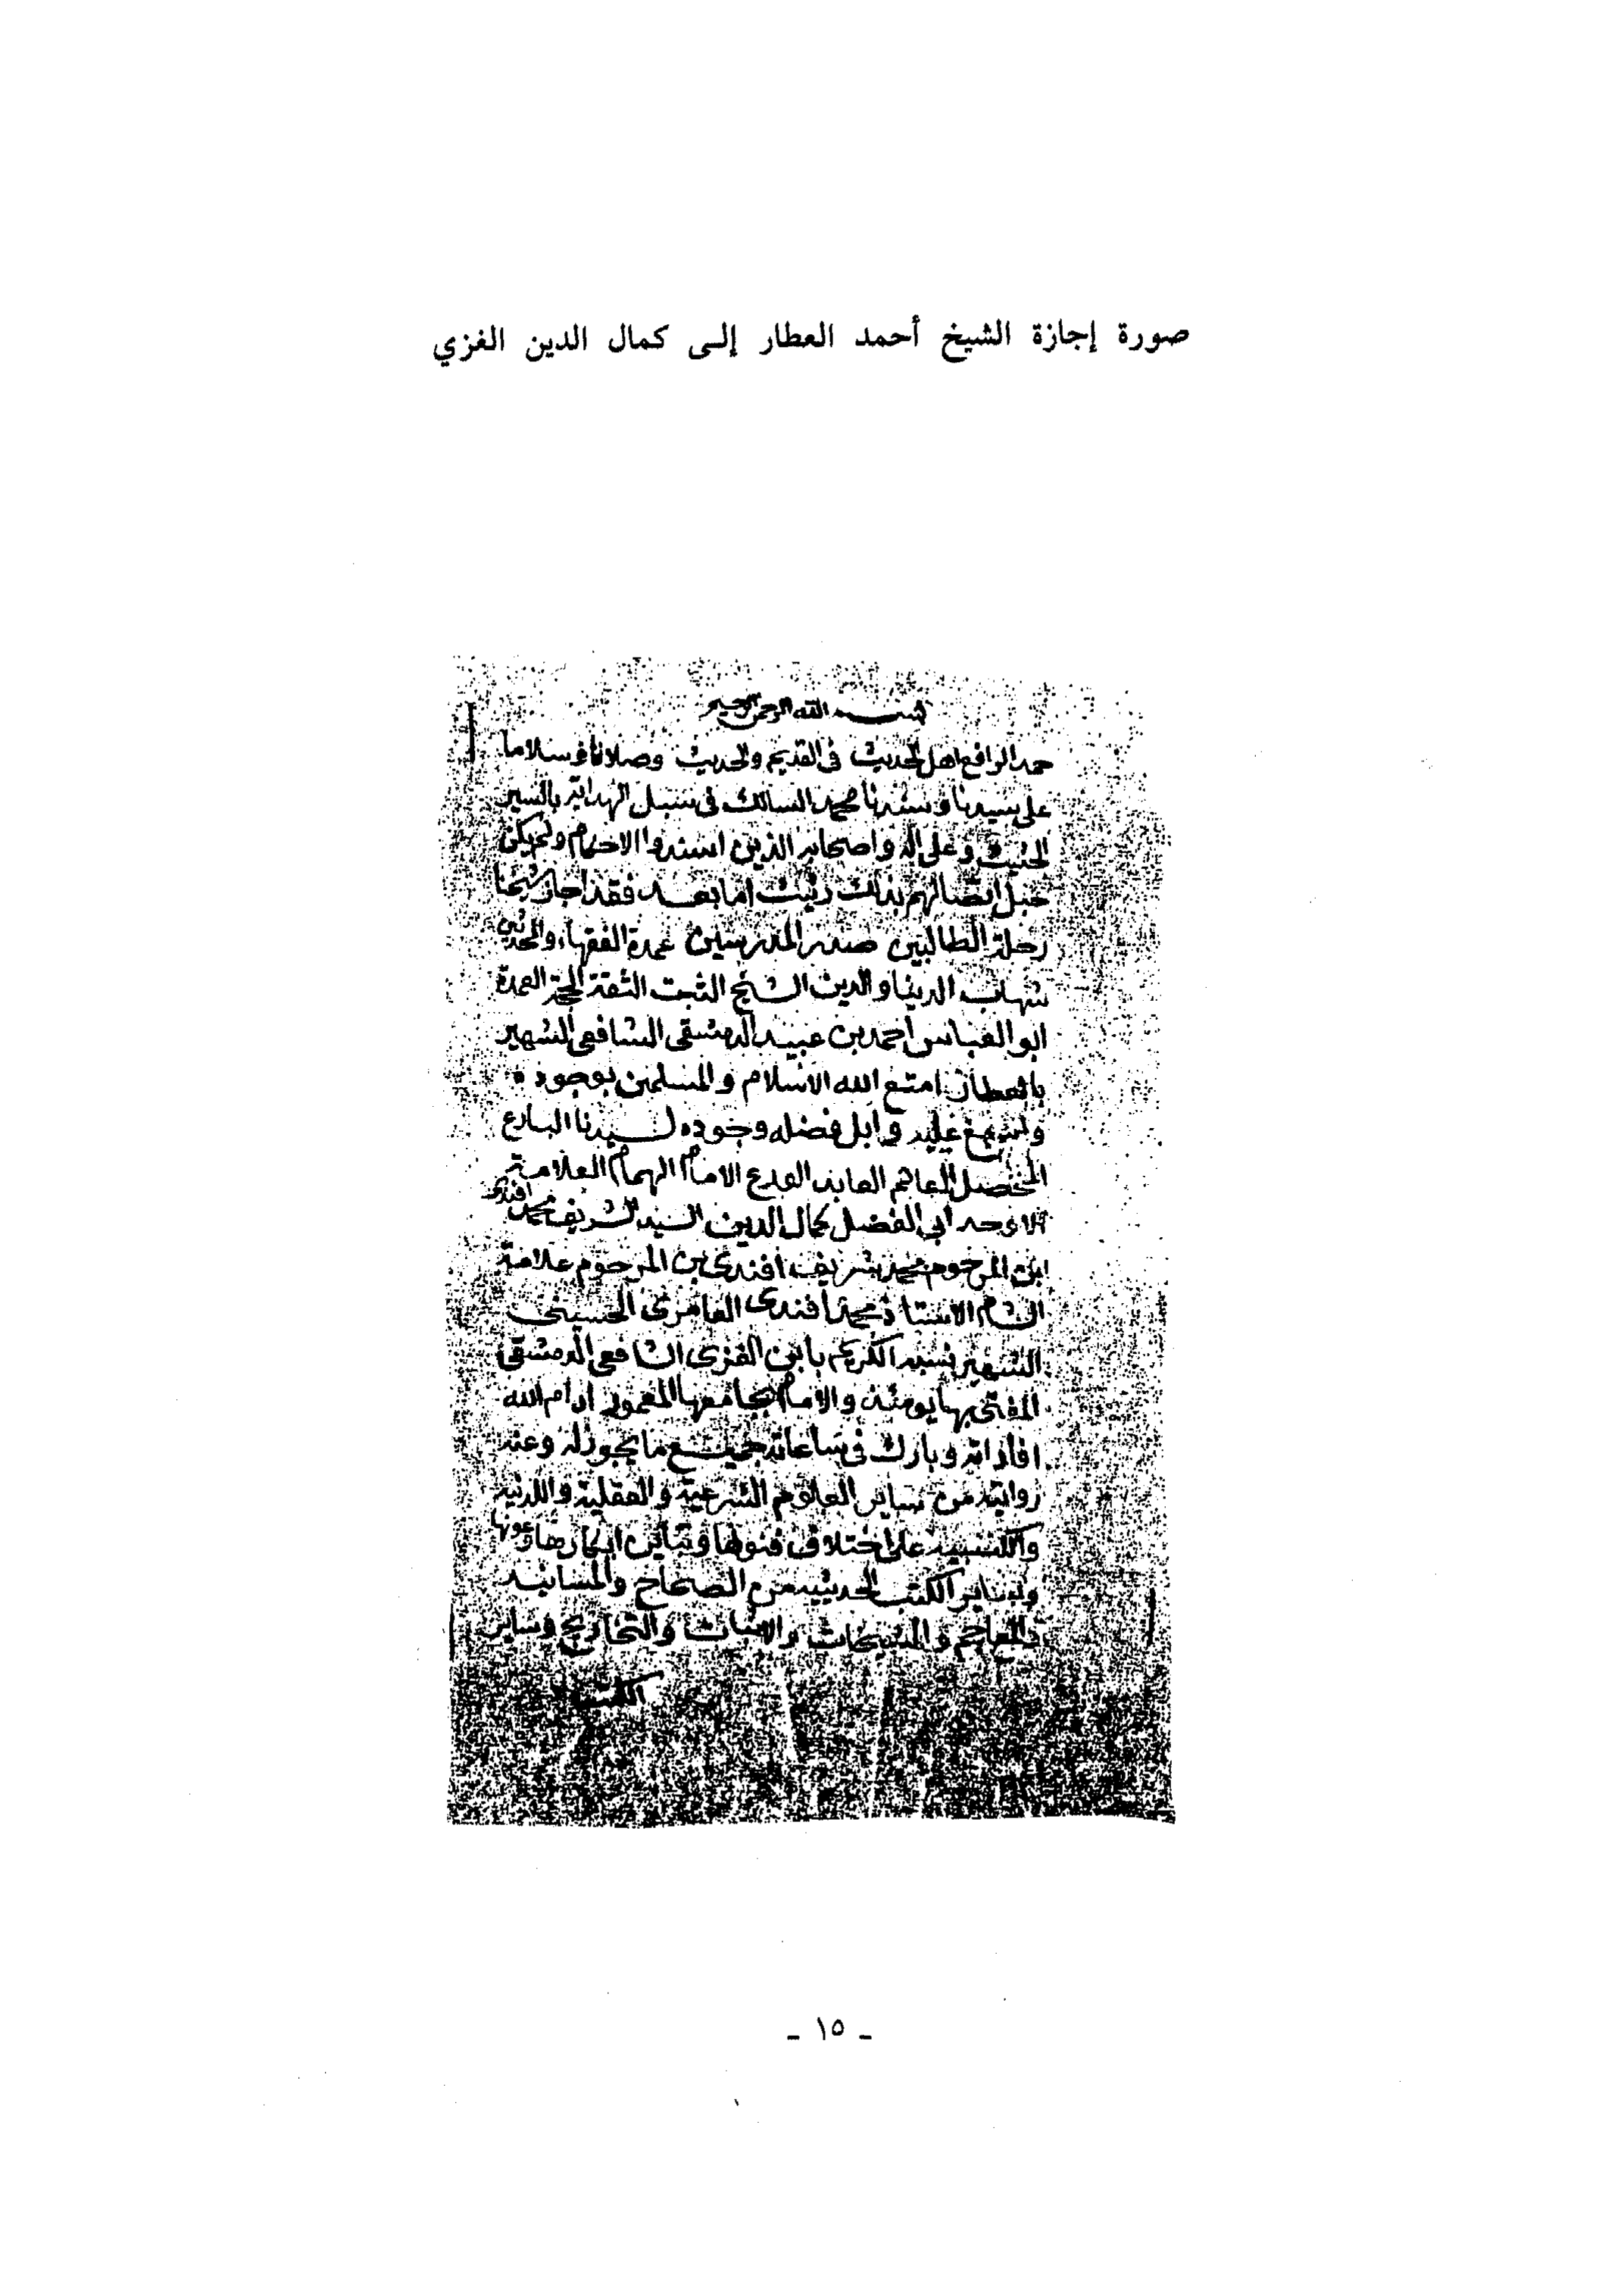 صورة إجازة الشيخ أحمد العطار إلى كمال الدين الغزي
بسم الله الرحمن الرحيم
حمدا لرافع اهل الحديث في القديم والحديث وصلاتا وسلاما
على سيدنا وسندنا محمد السالك في سبيل الهداية بالسير
الحثيث وعلى اله واصحابه الذين اسندوا الاحكام ولم يكن
حبل اتصالهم بذلك رثيث اما بعد فقد اجاز شيخنا
رحلة الطالبين صدر المدرسين عمدة الفقهاء والمحدثين
شهاب الدنيا والدين الشيخ الثبت الثقة الحجة العمدة
ابو العباس احمد بن عبيد الدمشقي الشافعي الشهير
بالعطار امتع الله الاسلام والمسلمين بوجوده
واسبغ عليه وابل فضله وجوده لسيدنا البارع
المحصل العالم العابد الورع الامام الهمام العلامة
الاوحد ابي الفضل كمال الدين السيد الشريف محمد افندي
ابن المرحوم محمد شريف افندي بن المرحوم علامة
الشام الاستاذ محمد افندي العامري الحسيني
الشهير نسبه الكريم بابن الغزي الشافعي الدمشقي
المفتي بها يومئذ والامام بجامعها المعمور ادام الله
افاداته وبارك في ساعاته جميع ما يجوز له وعنه
روايته من ساير العلوم الشرعية والعقلية واللدنية
والكسبية على اختلاف فنونها وتباين ابكارها وعونها
وساير الكتب الحديثيه من الصحاح والمسانيد
والمعاجم والمشيخات والاثبات والتخاريج وساير
الكتب
- ١٥ -